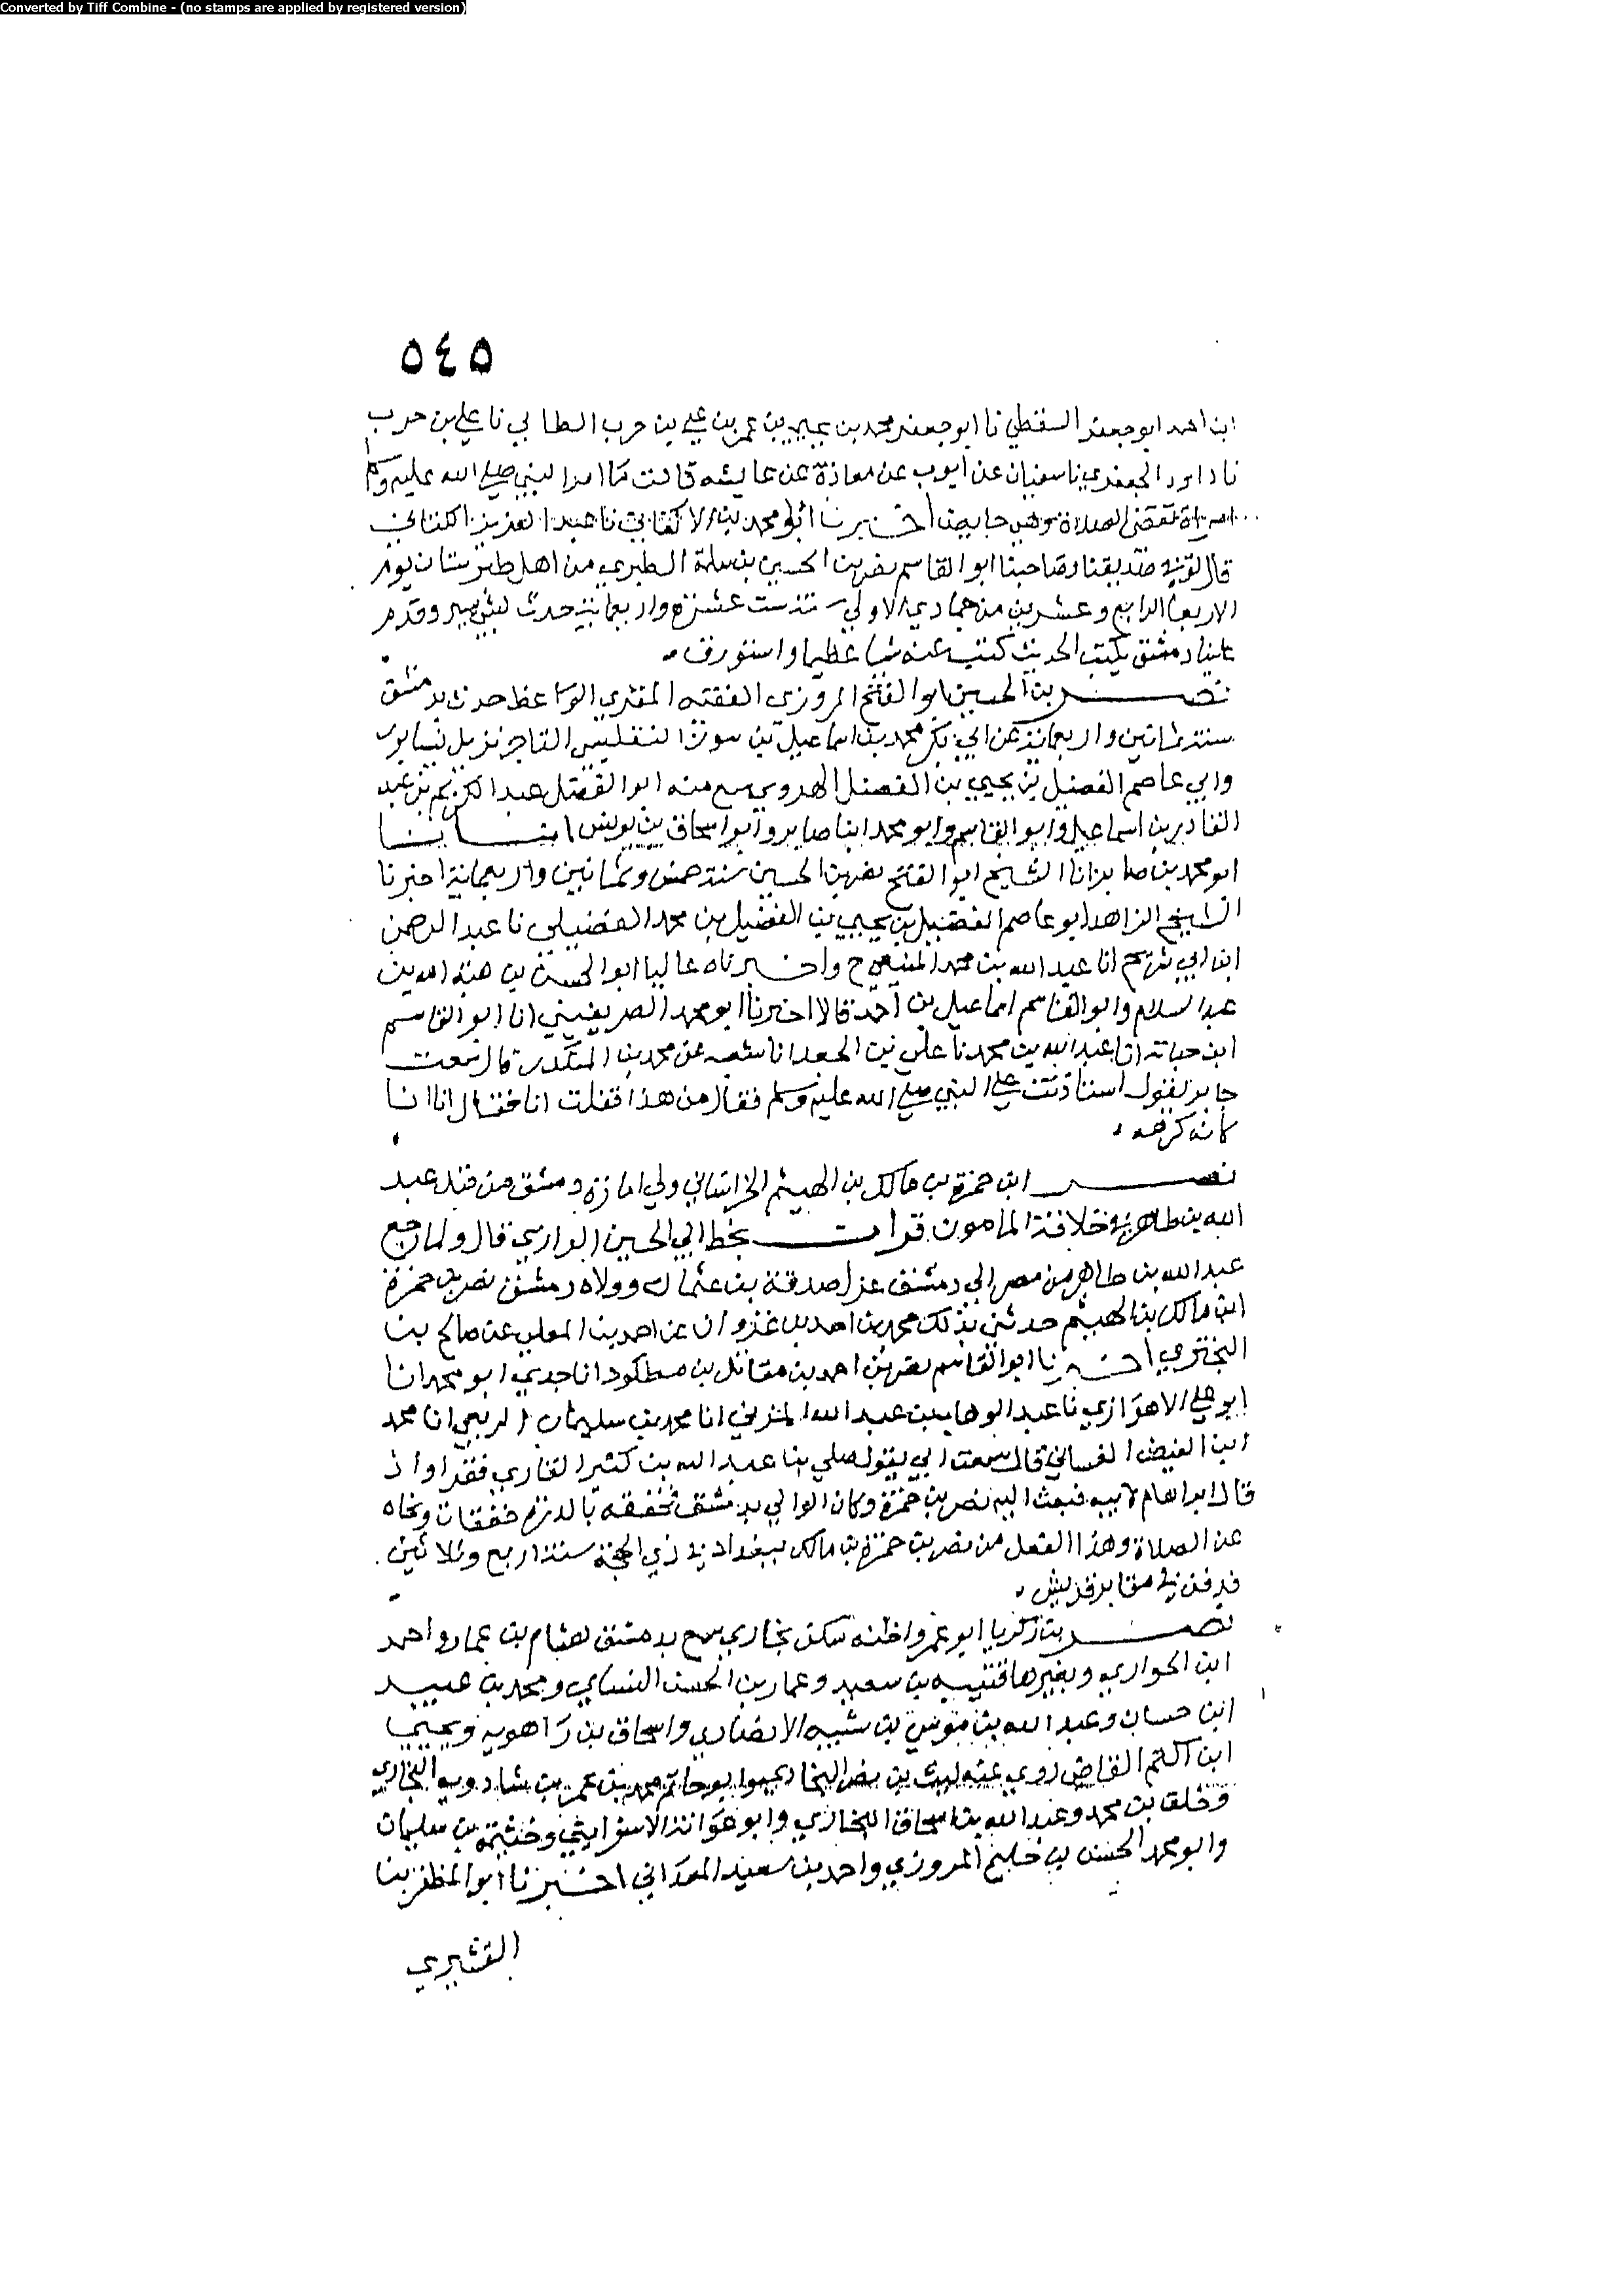 Converted by Tiff Combine - (no stamps are applied by registered version)
٥٤٥
ابن احمد ابو جعفر السقطي نا ابو جعفر محمد بن يحيى بن عمر بن علي بن حرب الطائي نا علي بن حرب
نا داود الجعفري نا سفيان عن ايوب عن معاذة عن عايشه قالت ما امر النبي صلى الله عليه وسلم
امراة تقضي الصلاة وهي حايض اخبرنا ابو محمد بن الاكفاني نا عبد العزيز الكتاني
قال توفي صديقنا وصاحبنا ابو القاسم نصر بن الحسين بن سلمة الطبري من اهل طبرستان يوم
الاربعا الرابع وعشرين من جمادي الاولى سنة ست عشرة واربعماية حدث بشي يسير وقدم
علينا دمشق يكتب الحديث كتب عنه شيا عظيما واستورق
نصر بن الحسين ابو الفتح المروزي الفقيه المقري الواعظ حدث بدمشق
سنة ثمانين واربعماية عن ابي بكر محمد بن اسماعيل بن سورا التفليسي التاجر نزيل نيسابور
وابي عاصم الفضيل بن يحيى بن الفضيل الهروي سمع منه ابو الفضل عبد الكريم بن عبد
القادر بن اسماعيل وابو القاسم وابو محمد ابنا صابر وابو اسحاق بن يونس انبانا
ابو محمد بن صابر انا الشيخ ابو الفتح نصر بن الحسين سنة خمس وثمانين واربعماية اخبرنا
الشيخ الزاهد ابو عاصم الفضيل بن يحيى بن الفضيل بن محمد الفضيلي نا عبد الرحمن
ابن ابي شريح انا عبد الله بن محمد المنيعي ح واخبرناه عاليا ابو الحسن بن هبة الله بن
عبد السلام وابو القاسم اسماعيل بن احمد قالا اخبرنا ابو محمد الصريفيني انا ابو القاسم
ابن حبابة انا عبد الله بن محمد نا علي بن الجعد انا شعبه عن محمد بن المنكدر قال سمعت
جابر يقول استاذنت على النبي صلى الله عليه وسلم فقال من هذا فقلت انا فقال انا انا
كانه كرهه
نصر ابن حمزة بن مالك بن الهيثم الخزاعي ولي امارة دمشق من قبل عبد
الله بن طاهر في خلافة المامون قرات بخط ابي الحسين الرازي قال ولما رجع
عبد الله بن طاهر من مصر الى دمشق عزل صدقة بن عثمان وولاه دمشق نصر بن حمزة
ابن مالك بن الهيثم حدثني بذلك محمد بن احمد بن غزوان عن احمد بن المعلى عن صالح بن
البختري اخبرنا ابو القاسم نصر بن احمد بن مقاتل بن مطكود انا جدي ابو محمد انا
ابو علي الاهوازي نا عبد الوهاب بن عبد الله المزني انا محمد بن سليمان الربعي انا محمد
ابن الفيض الغساني قال سمعت ابي يقول صلى بنا عبد الله بن كثير القاري فقرا واذ
قال ابراهام لابيه فبعث اليه نصر بن حمزة وكان الوالي بدمشق فخفقه بالدرة خفقات ونحاه
عن الصلاة وهذا الفعل من نصر بن حمزة بن مالك ببغداد في ذي الحجة سنة اربع وثلاثين
فدفن في مقابر قريش
نصر بن زكريا ابو عمرو اظنه سكن بخارى سمع بدمشق هشام بن عمار واحمد
ابن الحواري وبغيرها قتيبه بن سعيد وعمار بن الحسن النساي ومحمد بن عبيد
ابن حسان وعبد الله بن موسى بن شيبه الانصاري واسحاق بن راهويه ويحيى
ابن اكثم القاضي روى عنه ليث بن نصر البخاري وابو حاتم محمد بن عمر بن شادويه البخاري
وخلف بن محمد وعبد الله بن اسحاق البخاري وابو عوانة الاسفرايني وخيثمة بن سليمان
وابو محمد الحسن بن خليج المروزي واحمد بن سعيد المعداني اخبرنا ابو المظفر بن
القشيري